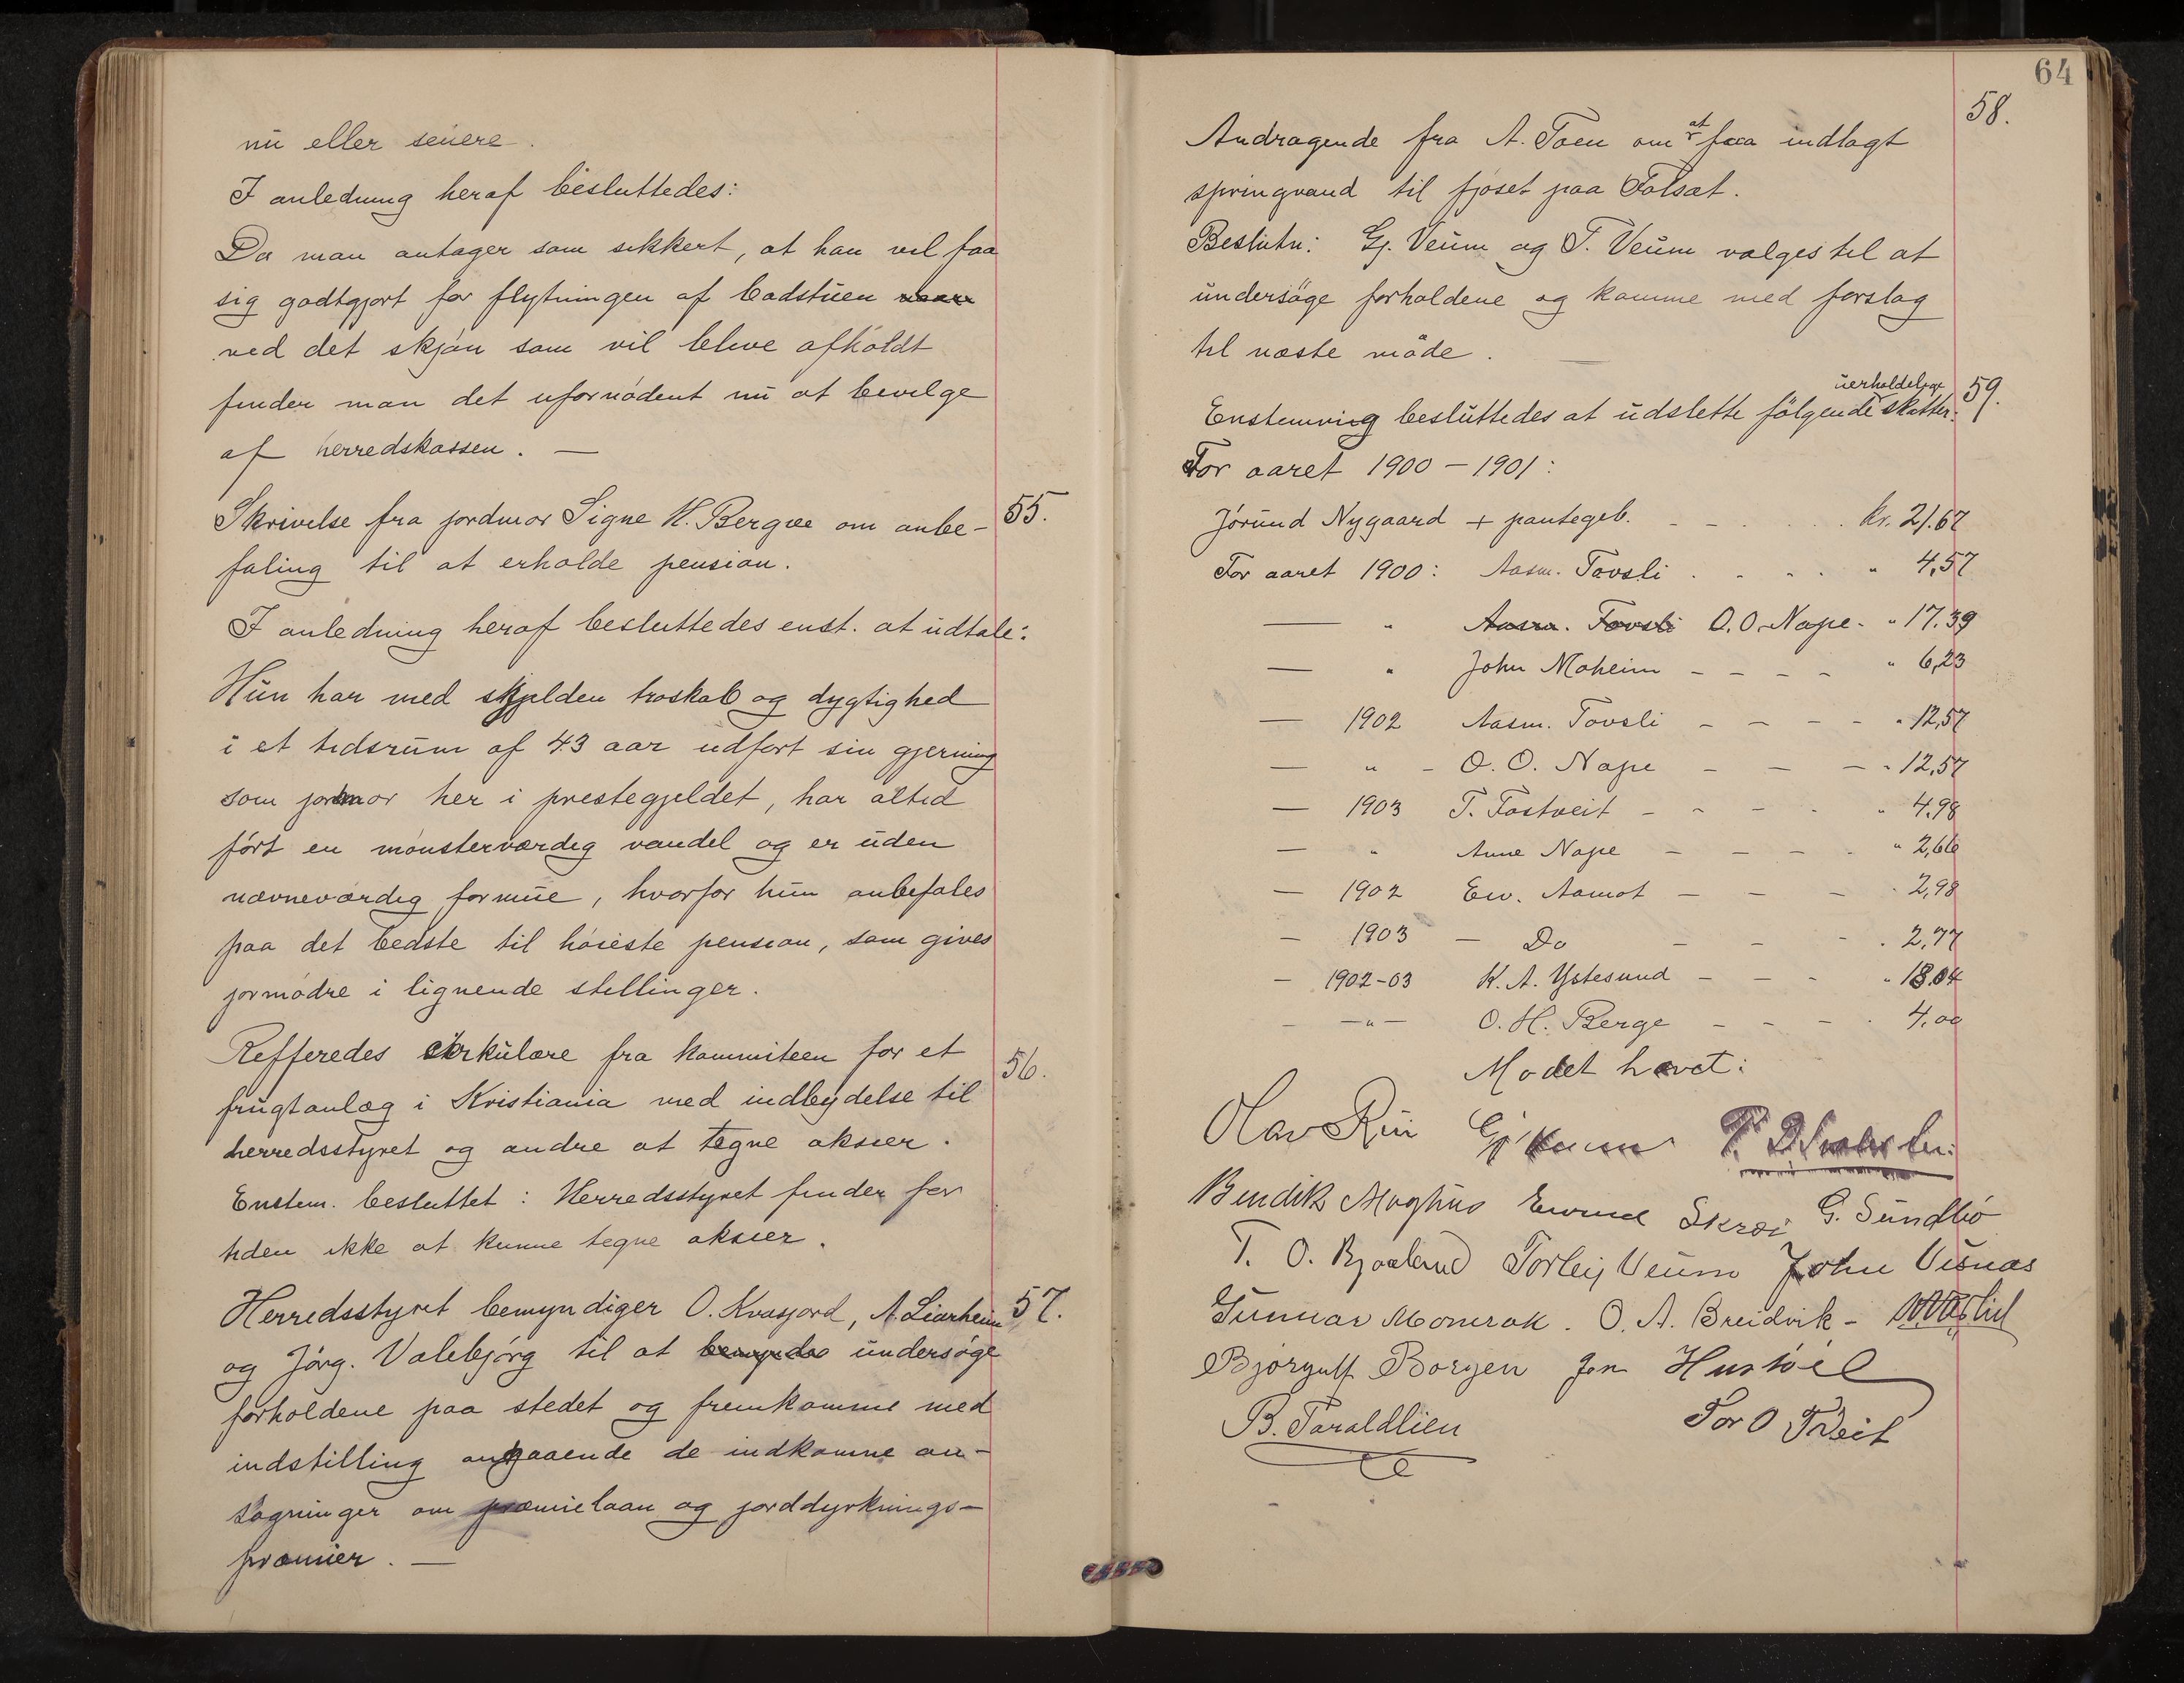 nu eller senere.
I anledning heraf besluttedes:
Da man antager som sikkert, at han vil faa
sig godtgjort for flytningen af badstuen
ved det skjøn som vil bleve afholdt
finder man det ufornødent nu at bevilge
af herredskassen. —
Skrivelse fra jordmor Signe H. Bergve om anbe- 55.
faling til at erholde pension.
I anledning heraf besluttedes enst. at udtale:
Hun har med skjelden troskab og dygtighed
i et tidsrum af 43 aar udført sin gjerning
som jordmor her i prestegjeldet, har altid
ført en mønsterværdig vandel og er uden
nævneværdig formue, hvorfor hun anbefales
paa det bedste til høieste pension, som gives
jormødre i lignende stillinger.
Refferedes cirkulære fra kommiteen for et 56.
frugtanlæg i Kristiania med indbydelse til
herredsstyret og andre at tegne aksier.
Enstem. besluttet: Herredsstyret finder for
tiden ikke at kunne tegne aksier.
Herredsstyret bemyndiger O. Kvasjord, A. Liarheim 57.
og Jørg. Valebjørg til at undersøge
forholdene paa stedet og fremkomme med
indstilling angaaende de indkomne an-
søgninger om præmielaan og jorddyrknings-
præmier. —
64
58.
Andragende fra A. Toen om at faa indlagt
springvand til fjøset paa Folsæt.
Beslutn: Gj. Veum og T. Veum vælges til at
undersøge forholdene og komme med forslag
til næste møde. —
Enstemmig besluttedes at udslette følgende uerholdelige skatter. 59.
For aaret 1900 – 1901:
Jørund Nygaard + pantegeb. - - . . . . kr. 21.67
For aaret 1900: Aasm. Tovsli . - - . " 4,57
— " Aasm. Tovsli O. O. Nape - " 17.39
— " John Moheim - - - - " 6,23
— 1902 Aasm. Tovsli - - - - " 12,57
— " - O. O. Nape - - - " 12,57
— 1903 T. Fostveit - - - - " 4.98
— " Anne Nape - - - - " 2,66
— 1902 Eiv. Aamot - - - " 2,98
— 1903 - Do - - - . 2,77
— 1902-03 K. A. Ystesund - - - " 18.04
- —"— O. H. Berge - - - . 4.00
Mødet hævet:
Olav Rui Gj Veum
Bendik Moghus Eivind Skrei G. Sundbø
T. O. Bjaaland Torleiv Veum John Visnæs
Gunnar Momrak. O. A. Breidvik -
Bjørgulf Borgen Jon Hustvei
B. Taraldlien Tor O Tveit